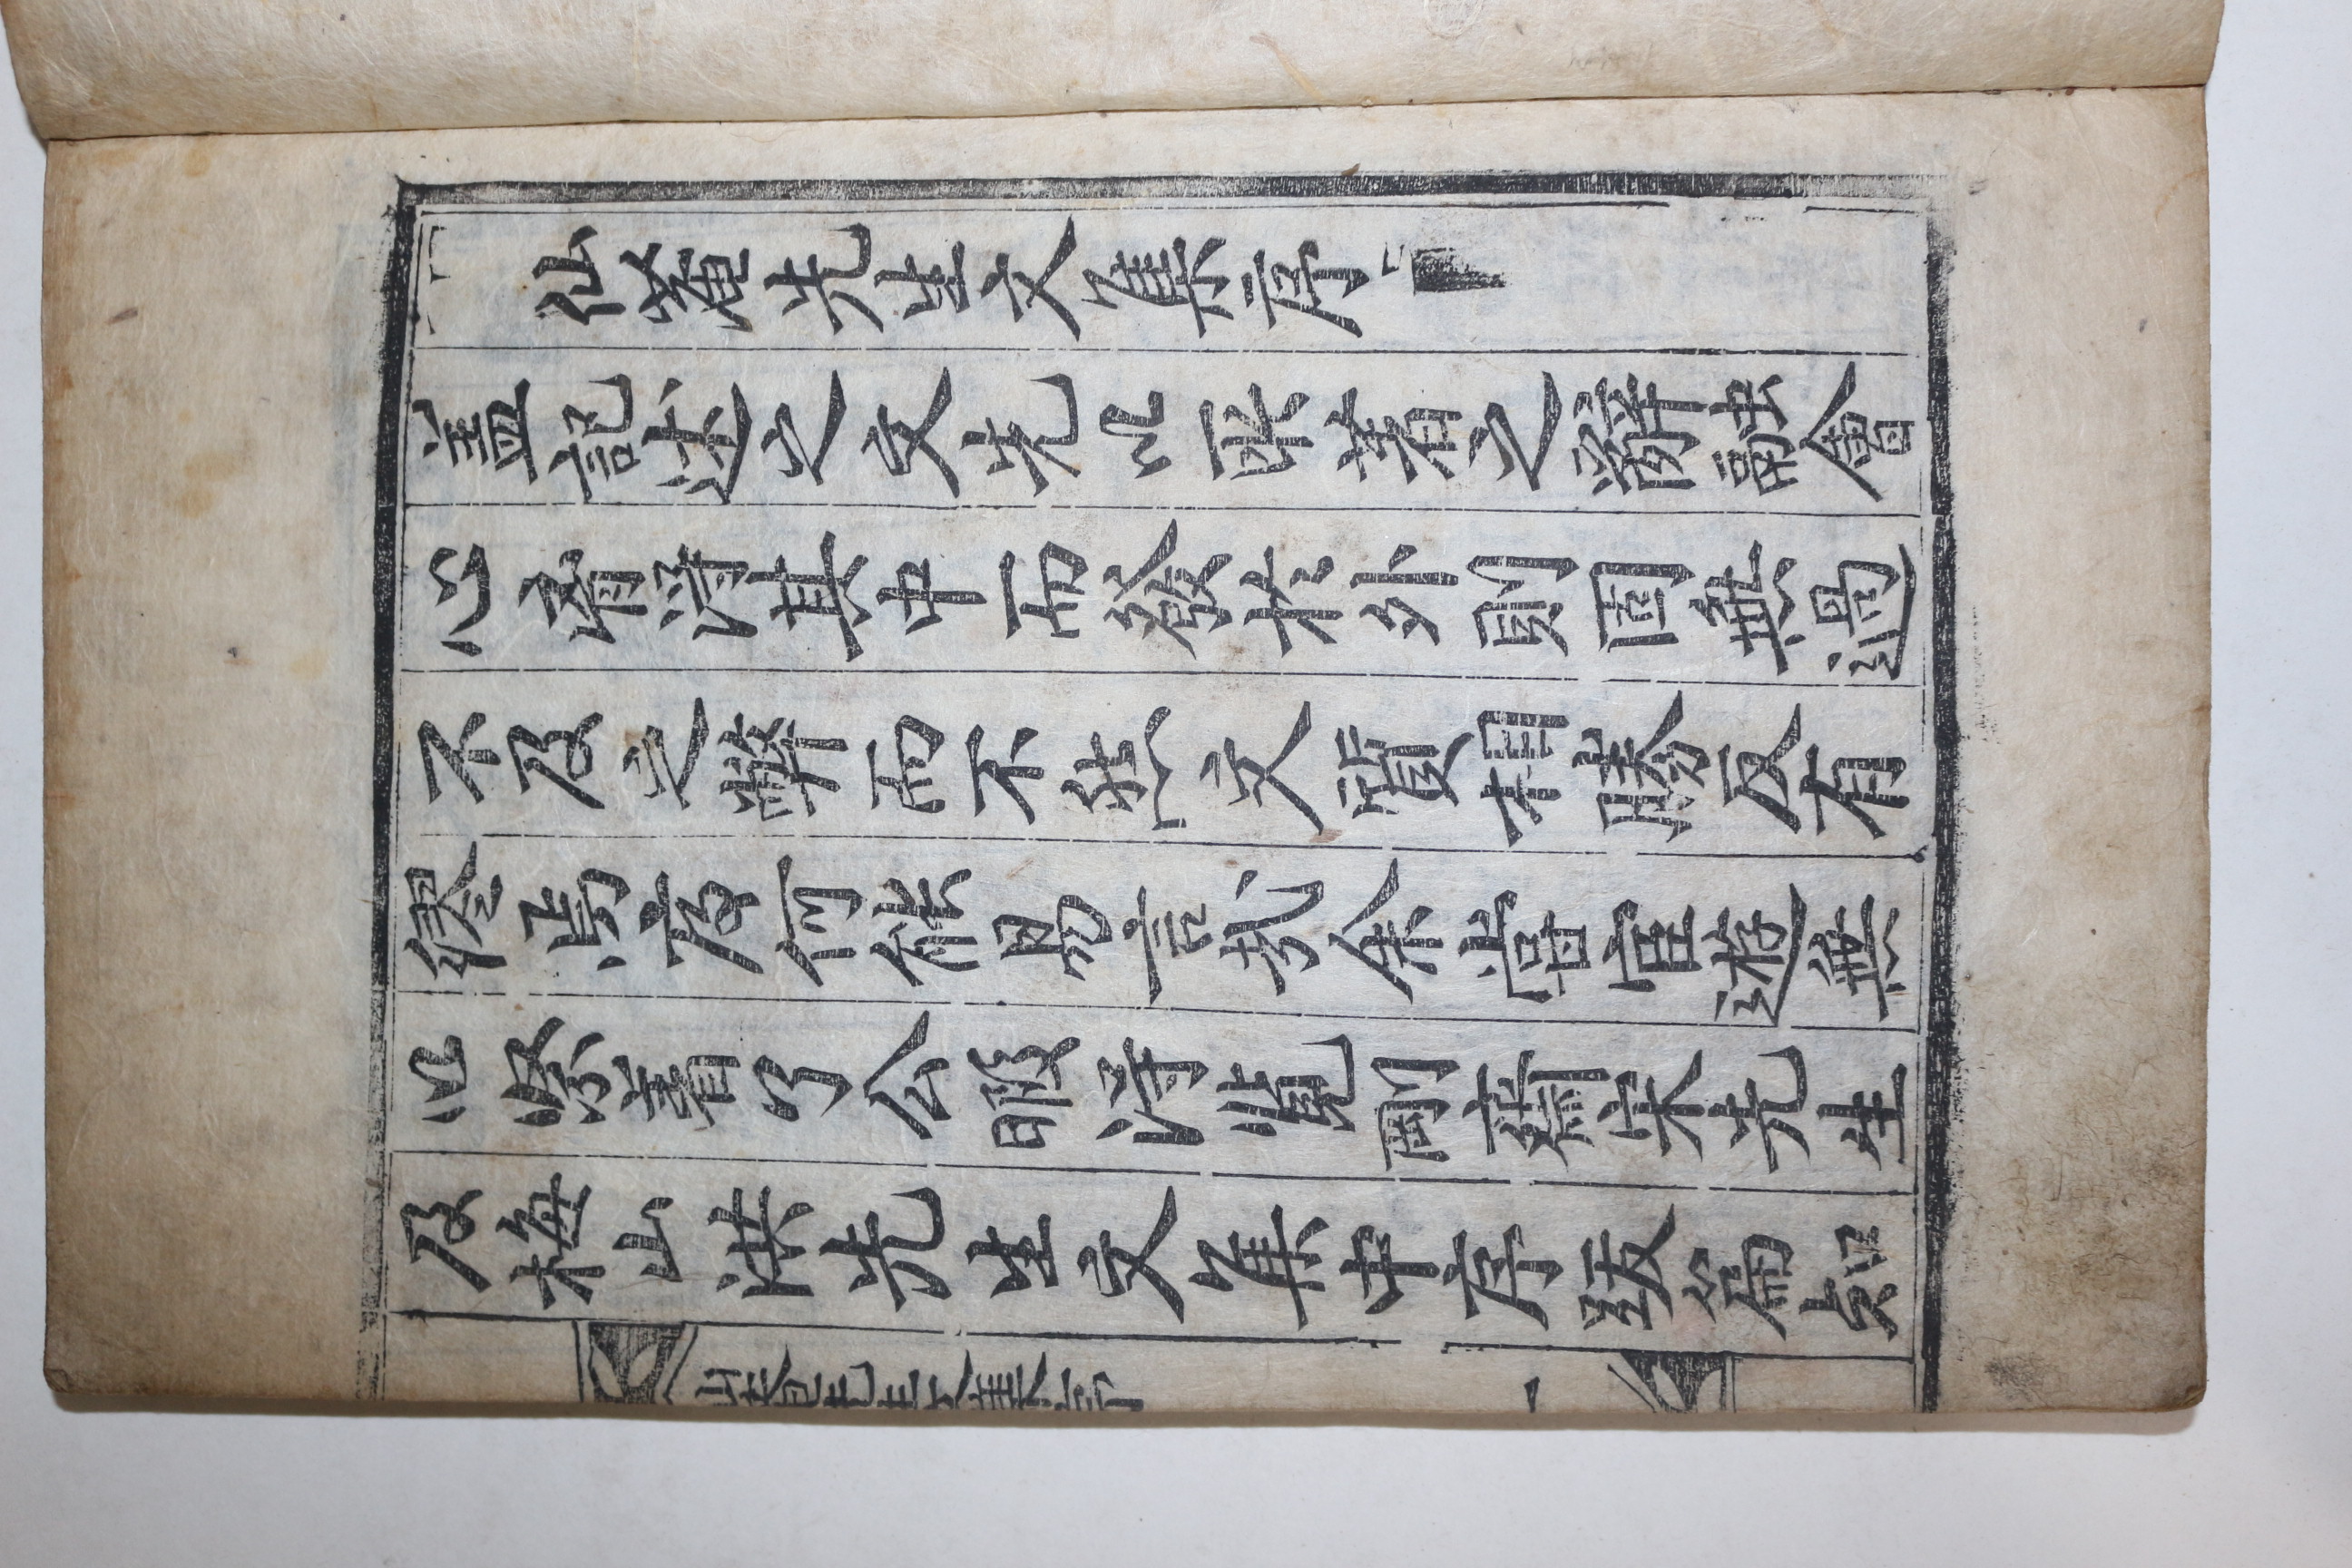 仙菴先生文集序
盖記述之文先以所著之辭融會
心膂淂其中而發於外則固無過
不及之弊而不然文質相勝反有
繆焉庋何能易言㢤余當宦遊無
以紧着了公暇淂覧剛齋宋先生
及梅山洪先生文集中序跋篇知
仙菴先生文集序
一